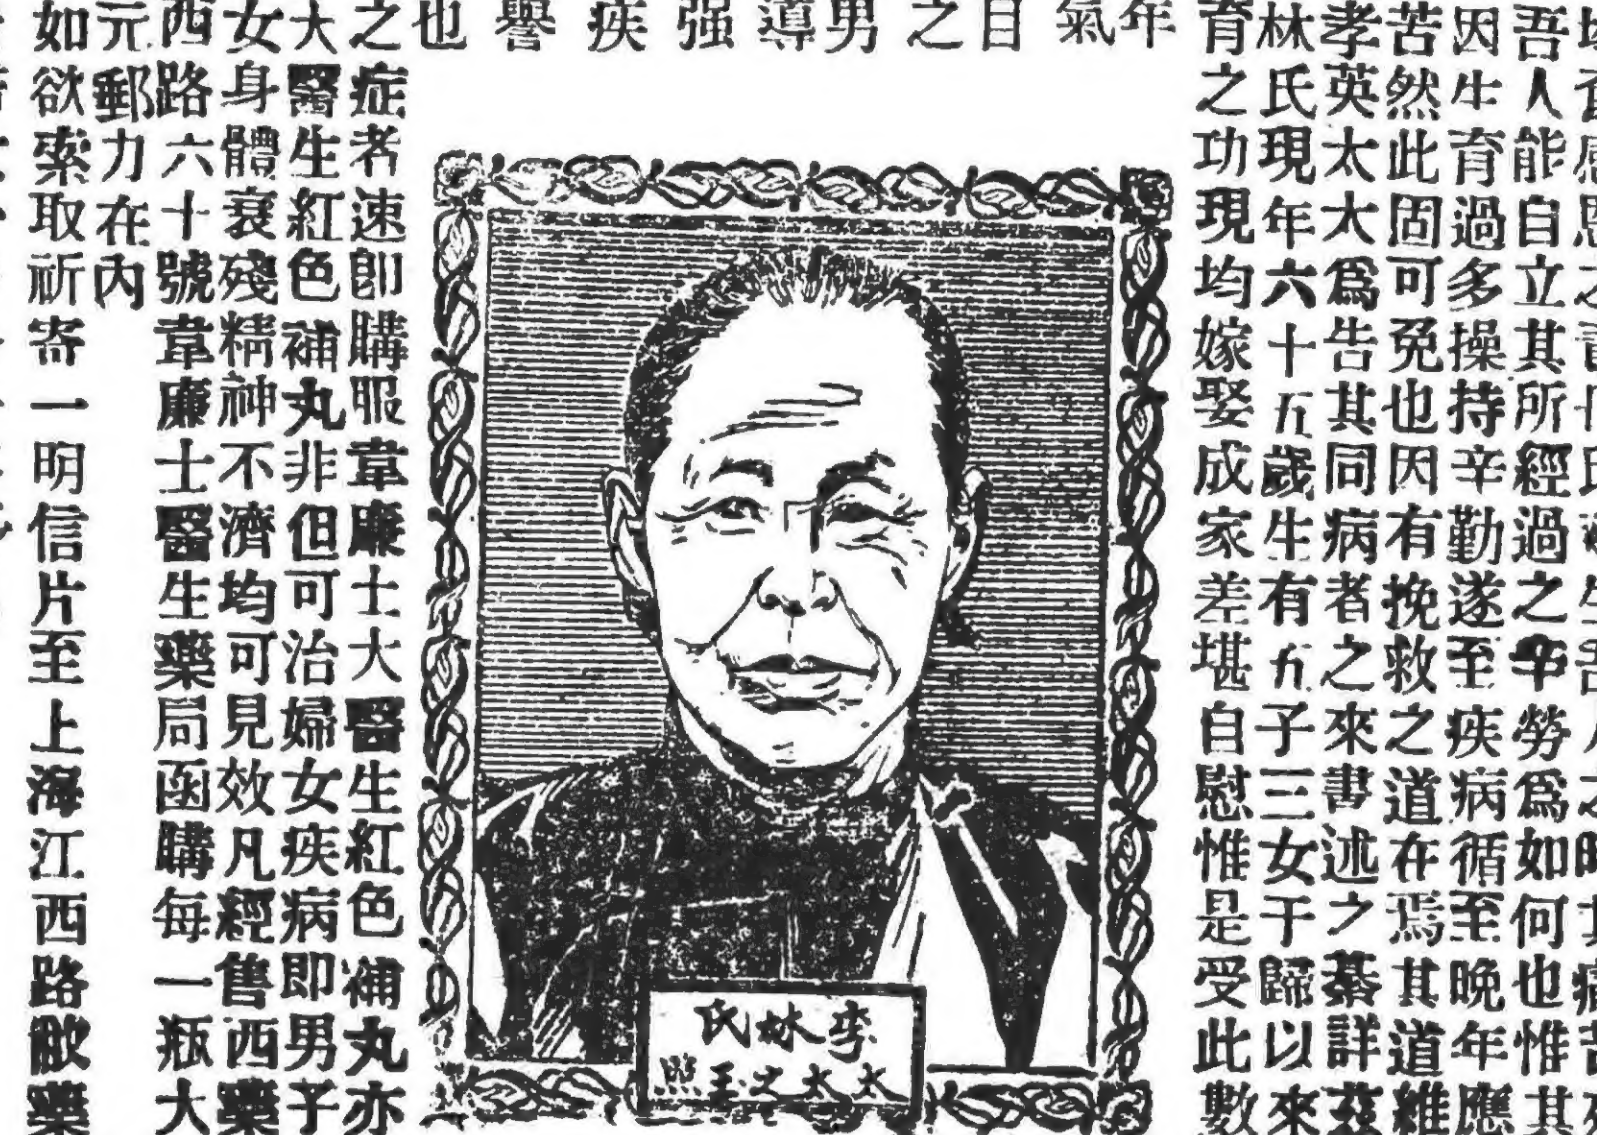 吾人能自立其所經過之辛勞爲如何也惟其
因生育過多操持辛勤遂至疾病循至晚年應
苦然此固可免也因有挽救之道在焉其道維
孝英太太爲告其同病者之來書述之綦詳茲
林氏現年六十五歲生有五子三女于歸以來
育之功現均嫁娶成家差堪自慰惟是受此數
年
氣
目
之
男
導
强
疾
譽
也
李林氏
太太之玉照
之症者速卽購服韋廉士大醫生紅色補丸亦
大醫生紅色補丸非但可治婦女疾病即男子
女身體衰殘精神不濟均可見效凡經售西藥
西路六十號韋廉士醫生藥局函購每一瓶大
元郵力在內
如欲索取祈寄一明信片至上海江西路敝藥